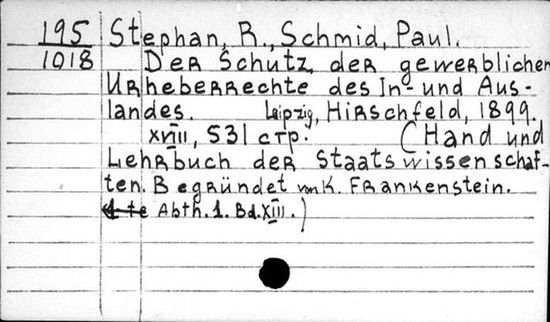 195 Stephan, R., Schmid, Paul.
1018 Der Schutz der gewerblichen
Urheberrechte des In- und Aus-
landes. Leipzig, Hirschfeld, 1899.
XVIII, 531 стр. (Hand und
Lehrbuch der Staatswissenschaf-
ten. Begründet von K. Frankenstein.
Abth. 1. Bd. XIII.)